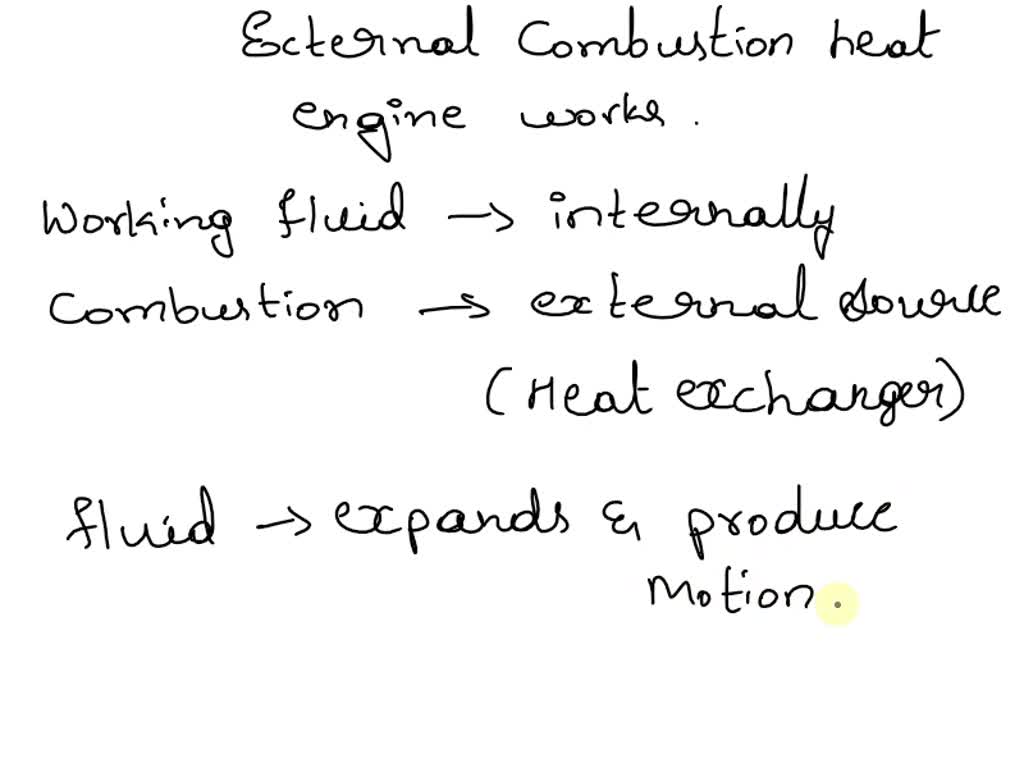 External Combustion heat
engine works.
Working fluid → internally
Combustion → external source
(Heat exchanger)
fluid → expands & produce
Motion.